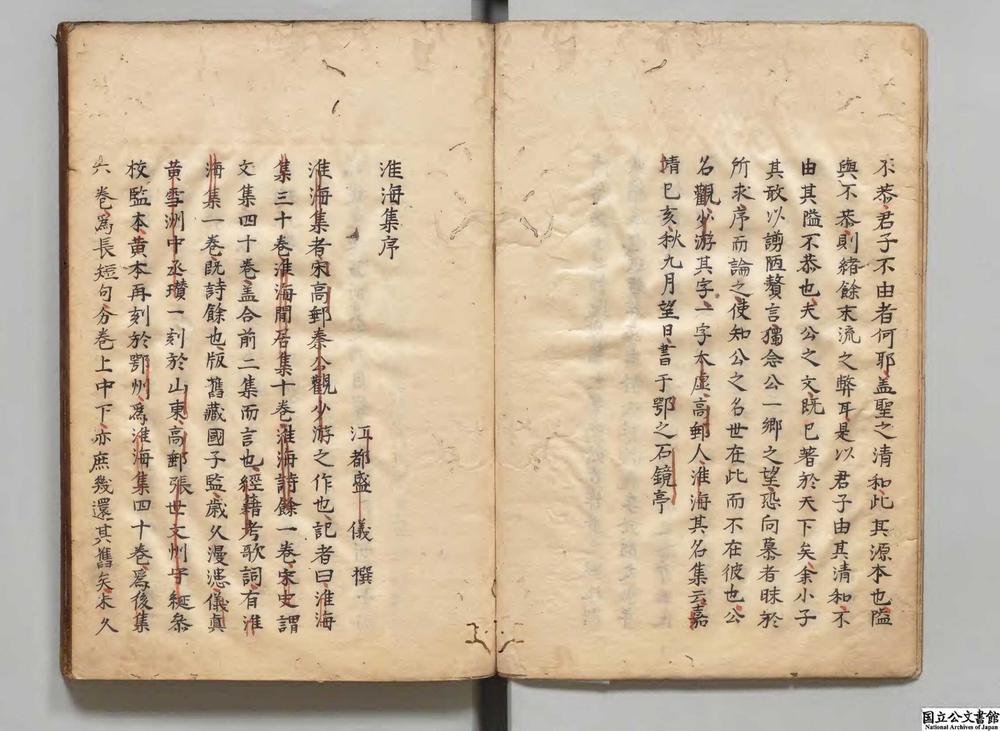 不恭君子不由者何耶盖聖之清和此其源本也隘
與不恭則緒餘末流之弊耳是以君子由其清和不
由其隘不恭也夫公之文既已著於天下矣余小子
其敢以謭陋贅言獨念公一鄉之望恐向慕者昧於
所求序而論之使知公之名世在此而不在彼也公
名觀少游其字一字太虛高郵人淮海其名集云嘉
靖己亥秋九月望日書于鄂之石鏡亭
淮海集序
江都盛 儀 撰
淮海集者宋高郵秦公觀少游之作也記者曰淮海
集三十卷淮海閒居集十卷淮海詩餘一卷宋史謂
文集四十卷盖合前二集而言也經籍考歌詞有淮
海集一卷既詩餘也版舊藏國子監歲久漫漶儀真
黄雪洲中丞瓚一刻於山東高郵張世文州守綖叅
校監本黄本再刻於鄂州為淮海集四十卷為後集
六卷為長短句分卷上中下亦庶幾還其舊矣未久
国立公文書館
National Archives of Japan